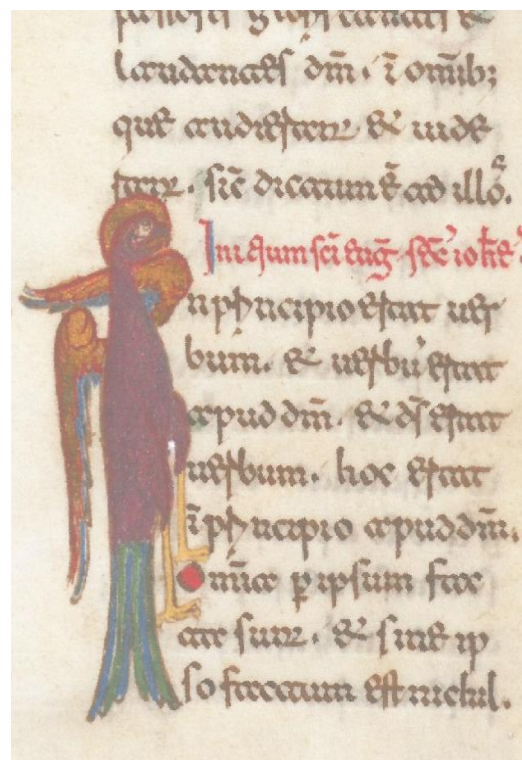 laudantes dm̄. ī omnib;
que audierant & uide
rant. sic̄ dictum ē ad illos.
Initium sc̄i eug̅. sec̄ ioh̄e
n principio erat uer
bum. & uerbū erat
apud dm̄. & ds̄ erat
uerbum. hoc erat
ī principio apud dm̄.
omīa ꝑ ipsum fac
ta sunt. & sine ip
so factum est nichil.